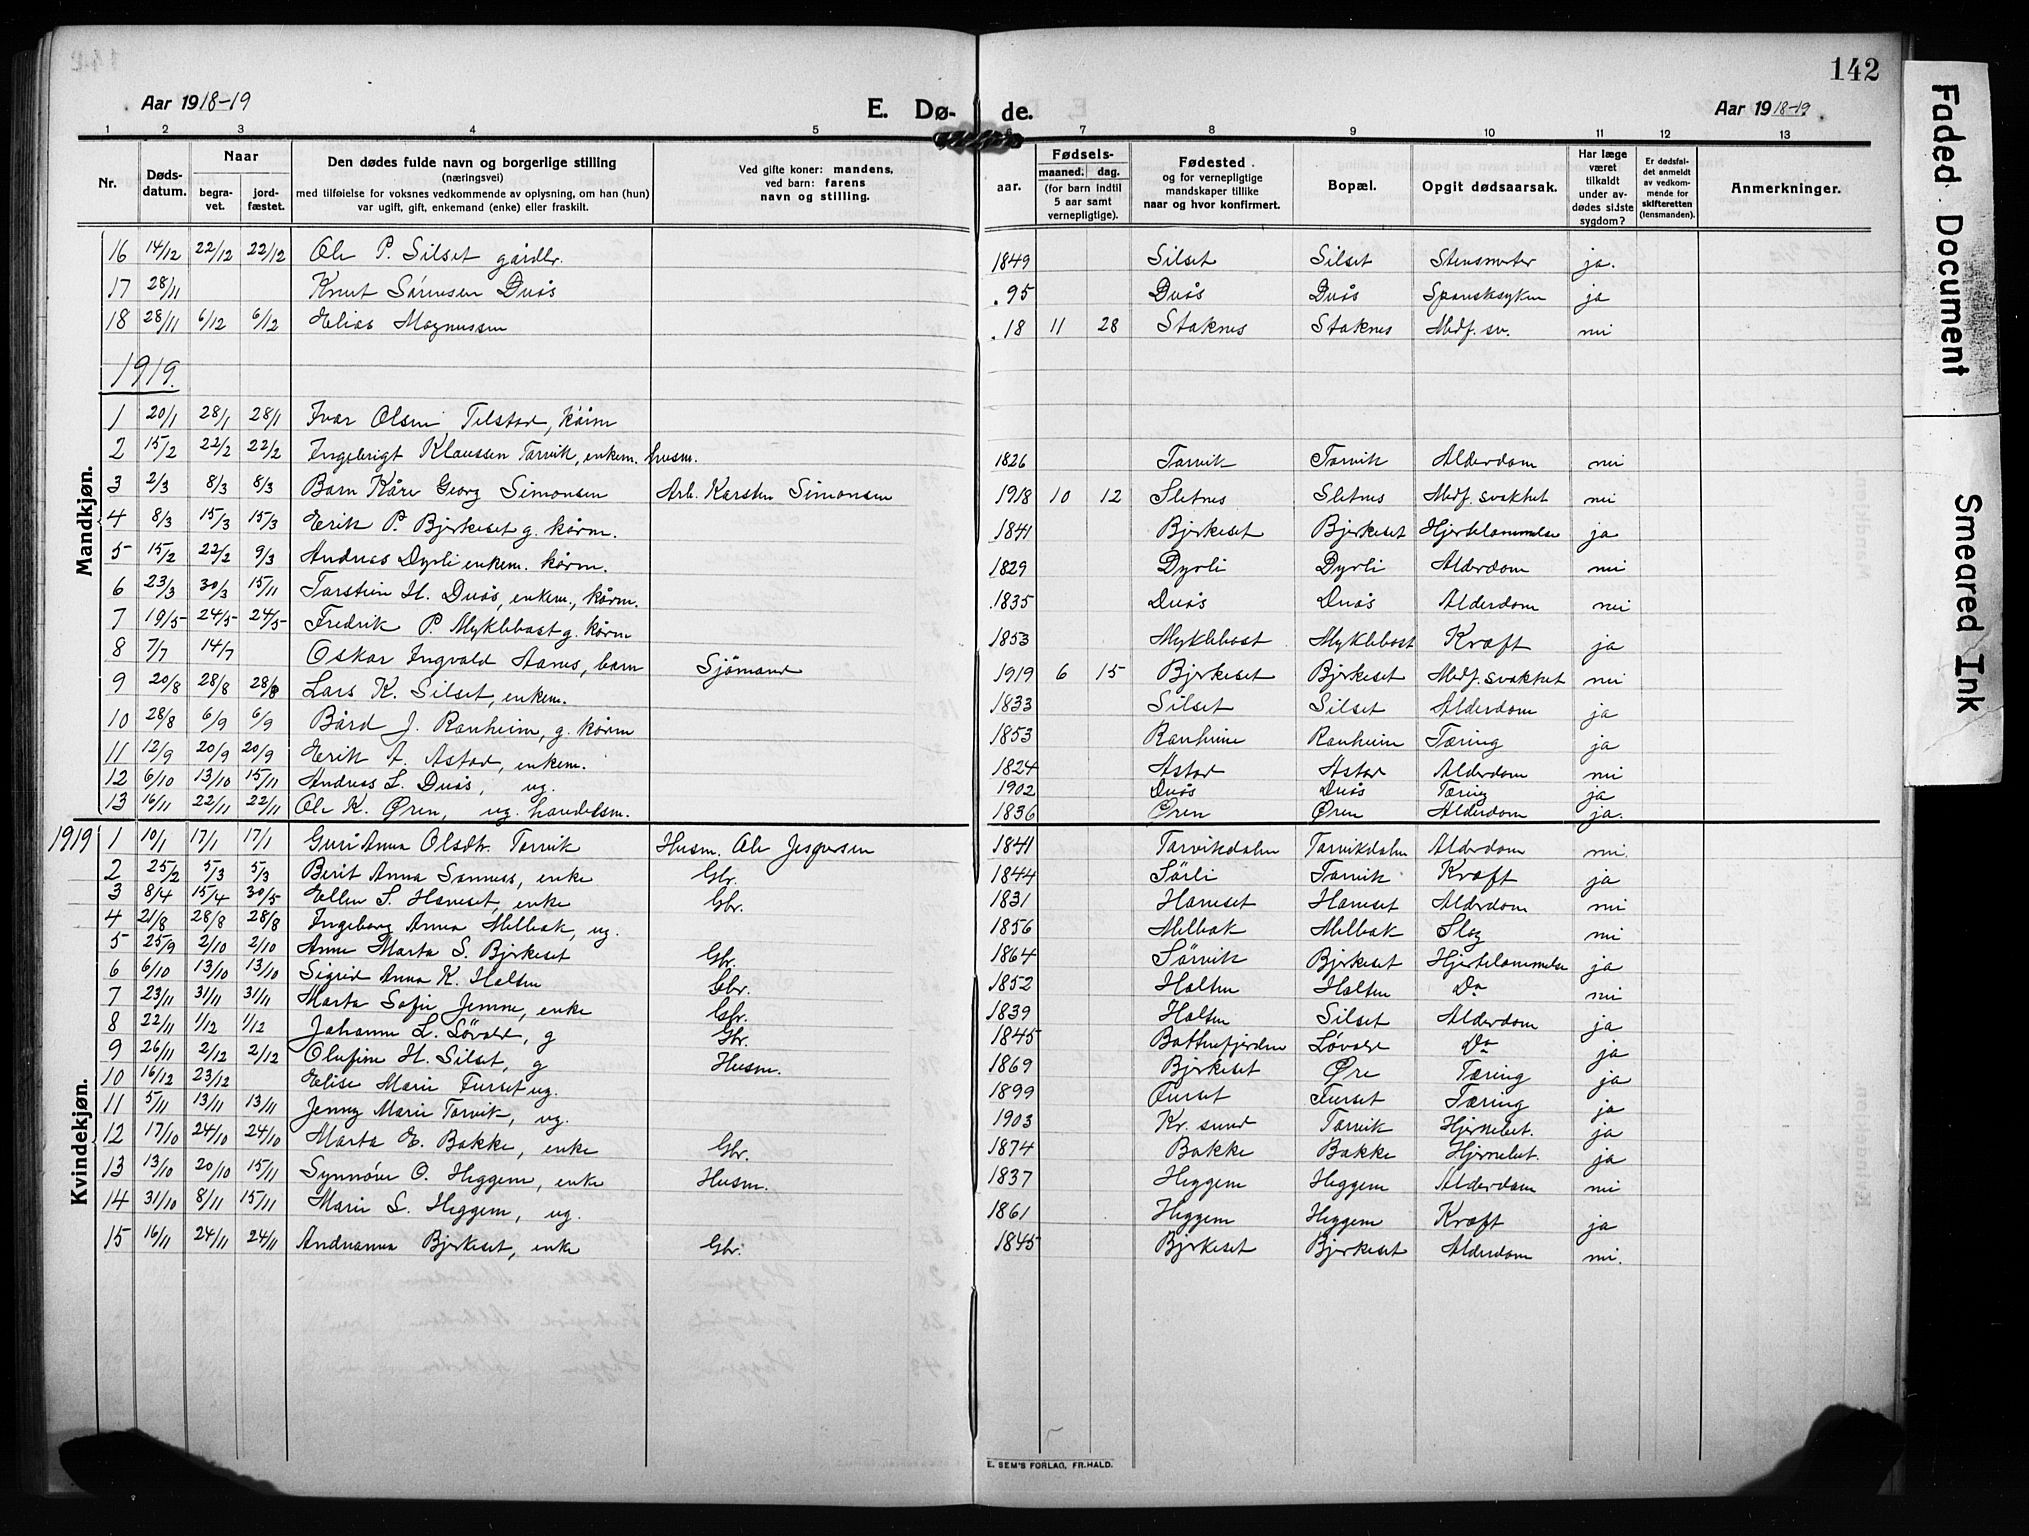 142
Aar 1918-19 E. Dø- de. Aar 1918-19
1 2 3 4 5 6 7 8 9 10 11 12 13
Nr. Døds-datum. Naar begra-vet. jord-fæstet. Den dødes fulde navn og borgerlige stilling (næringsvei) med tilføielse for voksnes vedkommende av oplysning, om han (hun) var ugift, gift, enkemand (enke) eller fraskilt. Ved gifte koner: mandens, ved barn: farens navn og stilling. aar. Fødsels- maaned. dag. (for barn indtil 5 aar samt vernepligtige). Fødested og for vernepligtige mandskaper tillike naar og hvor konfirmert. Bopæl. Opgit dødsaarsak. Har læge været tilkaldt under av-dødes sidste sygdom? Er dødsfal-det anmeldt av vedkom-mende for skifteretten (lensmanden). Anmerkninger.
16 14/12 22/12 22/12 Ole P. Silset gårdbr. 1849 Silset Silset ja.
17 28/11 Knut Sørensen Duås .95 Duås Duås Spansksyken ja
18 28/11 6/12 6/12 Elias Magnussen .18 11 28 Staknes Staknes Medf. sv. nei
1919.
Mandkjøn.
1 20/1 28/1 28/1 Ivar Olsen Telstad, kårm
2 15/2 22/2 22/2 Ingebrigt Klaussen Torvik, enkem. husm. 1826 Torvik Torvik Alderdom nei
3 2/3 8/3 8/3 Barn Kåre Georg Simonsen Arb. Karsten Simonsen 1918 10 12 Sletnes Sletnes Medf. svakhet nei
4 8/3 15/3 15/3 Erik P. Bjerkeset g. kårm. 1841 Bjerkeset Bjerkeset Hjertelammelse ja
5 15/2 22/2 9/3 Andreas Dyrli enkem. kårm. 1829 Dyrli Dyrli Alderdom nei
6 23/3 30/3 15/11 Torstein H. Duås, enkem., kårm. 1835 Duås Duås Alderdom nei
7 19/5 24/5 24/5 Fredrik P. Myklebost g. kårm 1853 Myklebost Myklebost Kræft ja
8 7/7 14/7 Oskar Ingvald Aanes, barn Sjømand 1919 6 15 Bjerkeset Bjerkeset Medf. svakhet nei
9 20/8 28/8 28/8 Lars K. Silset, enkem. 1833 Silset Silset Alderdom ja
10 28/8 6/9 6/9 Bård J. Ranheim, g. kårm 1853 Ranheim Ranheim Tæring ja
11 12/9 20/9 20/9 Erik A. Astad, enkem. 1824 Astad Astad Alderdom nei
12 6/10 13/10 15/11 Andreas L. Duås, ug. 1902 Duås Duås Tæring ja
13 16/11 22/11 22/11 Ole K. Øren, ug. handelsm. 1836 Øren Øren Alderdom ja.
1919
Kvindekjøn.
1 10/1 17/1 17/1 Guri Anna Olsdtr. Torvik Husm. Ole Jespersen 1841 Torvikdalen Torvikdalen Alderdom nei.
2 25/2 5/3 5/3 Berit Anna Sannes, enke Gbr. 1844 Sørli Torvik Kræft ja
3 8/4 15/4 30/5 Ellen S. Haneset, enke Gbr. 1831 Haneset Haneset Alderdom nei
4 21/8 28/8 28/8 Ingeborg Anna Melbak, ug. 1856 Melbak Melbak Slag nei
5 25/9 2/10 2/10 Anne Marta S. Bjerkeset Gbr. 1864 Sørvik Bjerkeset Hjertelammelse ja
6 6/10 13/10 13/10 Sigrid Anna K. Holten Gbr. 1852 Holten Holten Do nei
7 23/11 31/11 31/11 Marta Sofie Jemne, enke Gbr. 1839 Holten Silset Alderdom ja
8 22/11 1/12 1/12 Johanne L. Løvold, g Gbr. 1845 Batnfjorden Løvold Do ja
9 26/11 2/12 2/12 Olufine H. Silset, g Husm. 1869 Bjerkeset Øre Tæring ja
10 16/12 23/12 Elise Marie Furset ug. 1899 Furset Furset Tæring ja
11 5/11 13/11 13/11 Jenny Marie Torvik, ug. 1903 Kr. sund Torvik Hjernebet. ja
12 17/10 24/10 24/10 Marta E. Bakke, enke Gbr. 1874 Bakke Bakke Hjernebet. ja
13 13/10 20/10 15/11 Synnøve O. Heggem, enke Husm. 1837 Heggem Heggem Alderdom nei
14 31/10 8/11 15/11 Marie S. Heggem, ug. 1861 Heggem Heggem Kræft ja
15 16/11 24/11 24/11 Andrianna Bjerkeset, enke Gbr. 1845 Bjerkeset Bjerkeset Alderdom nei.
E. SEM'S FORLAG, FR.HALD.
Faded Document
Smeared Ink